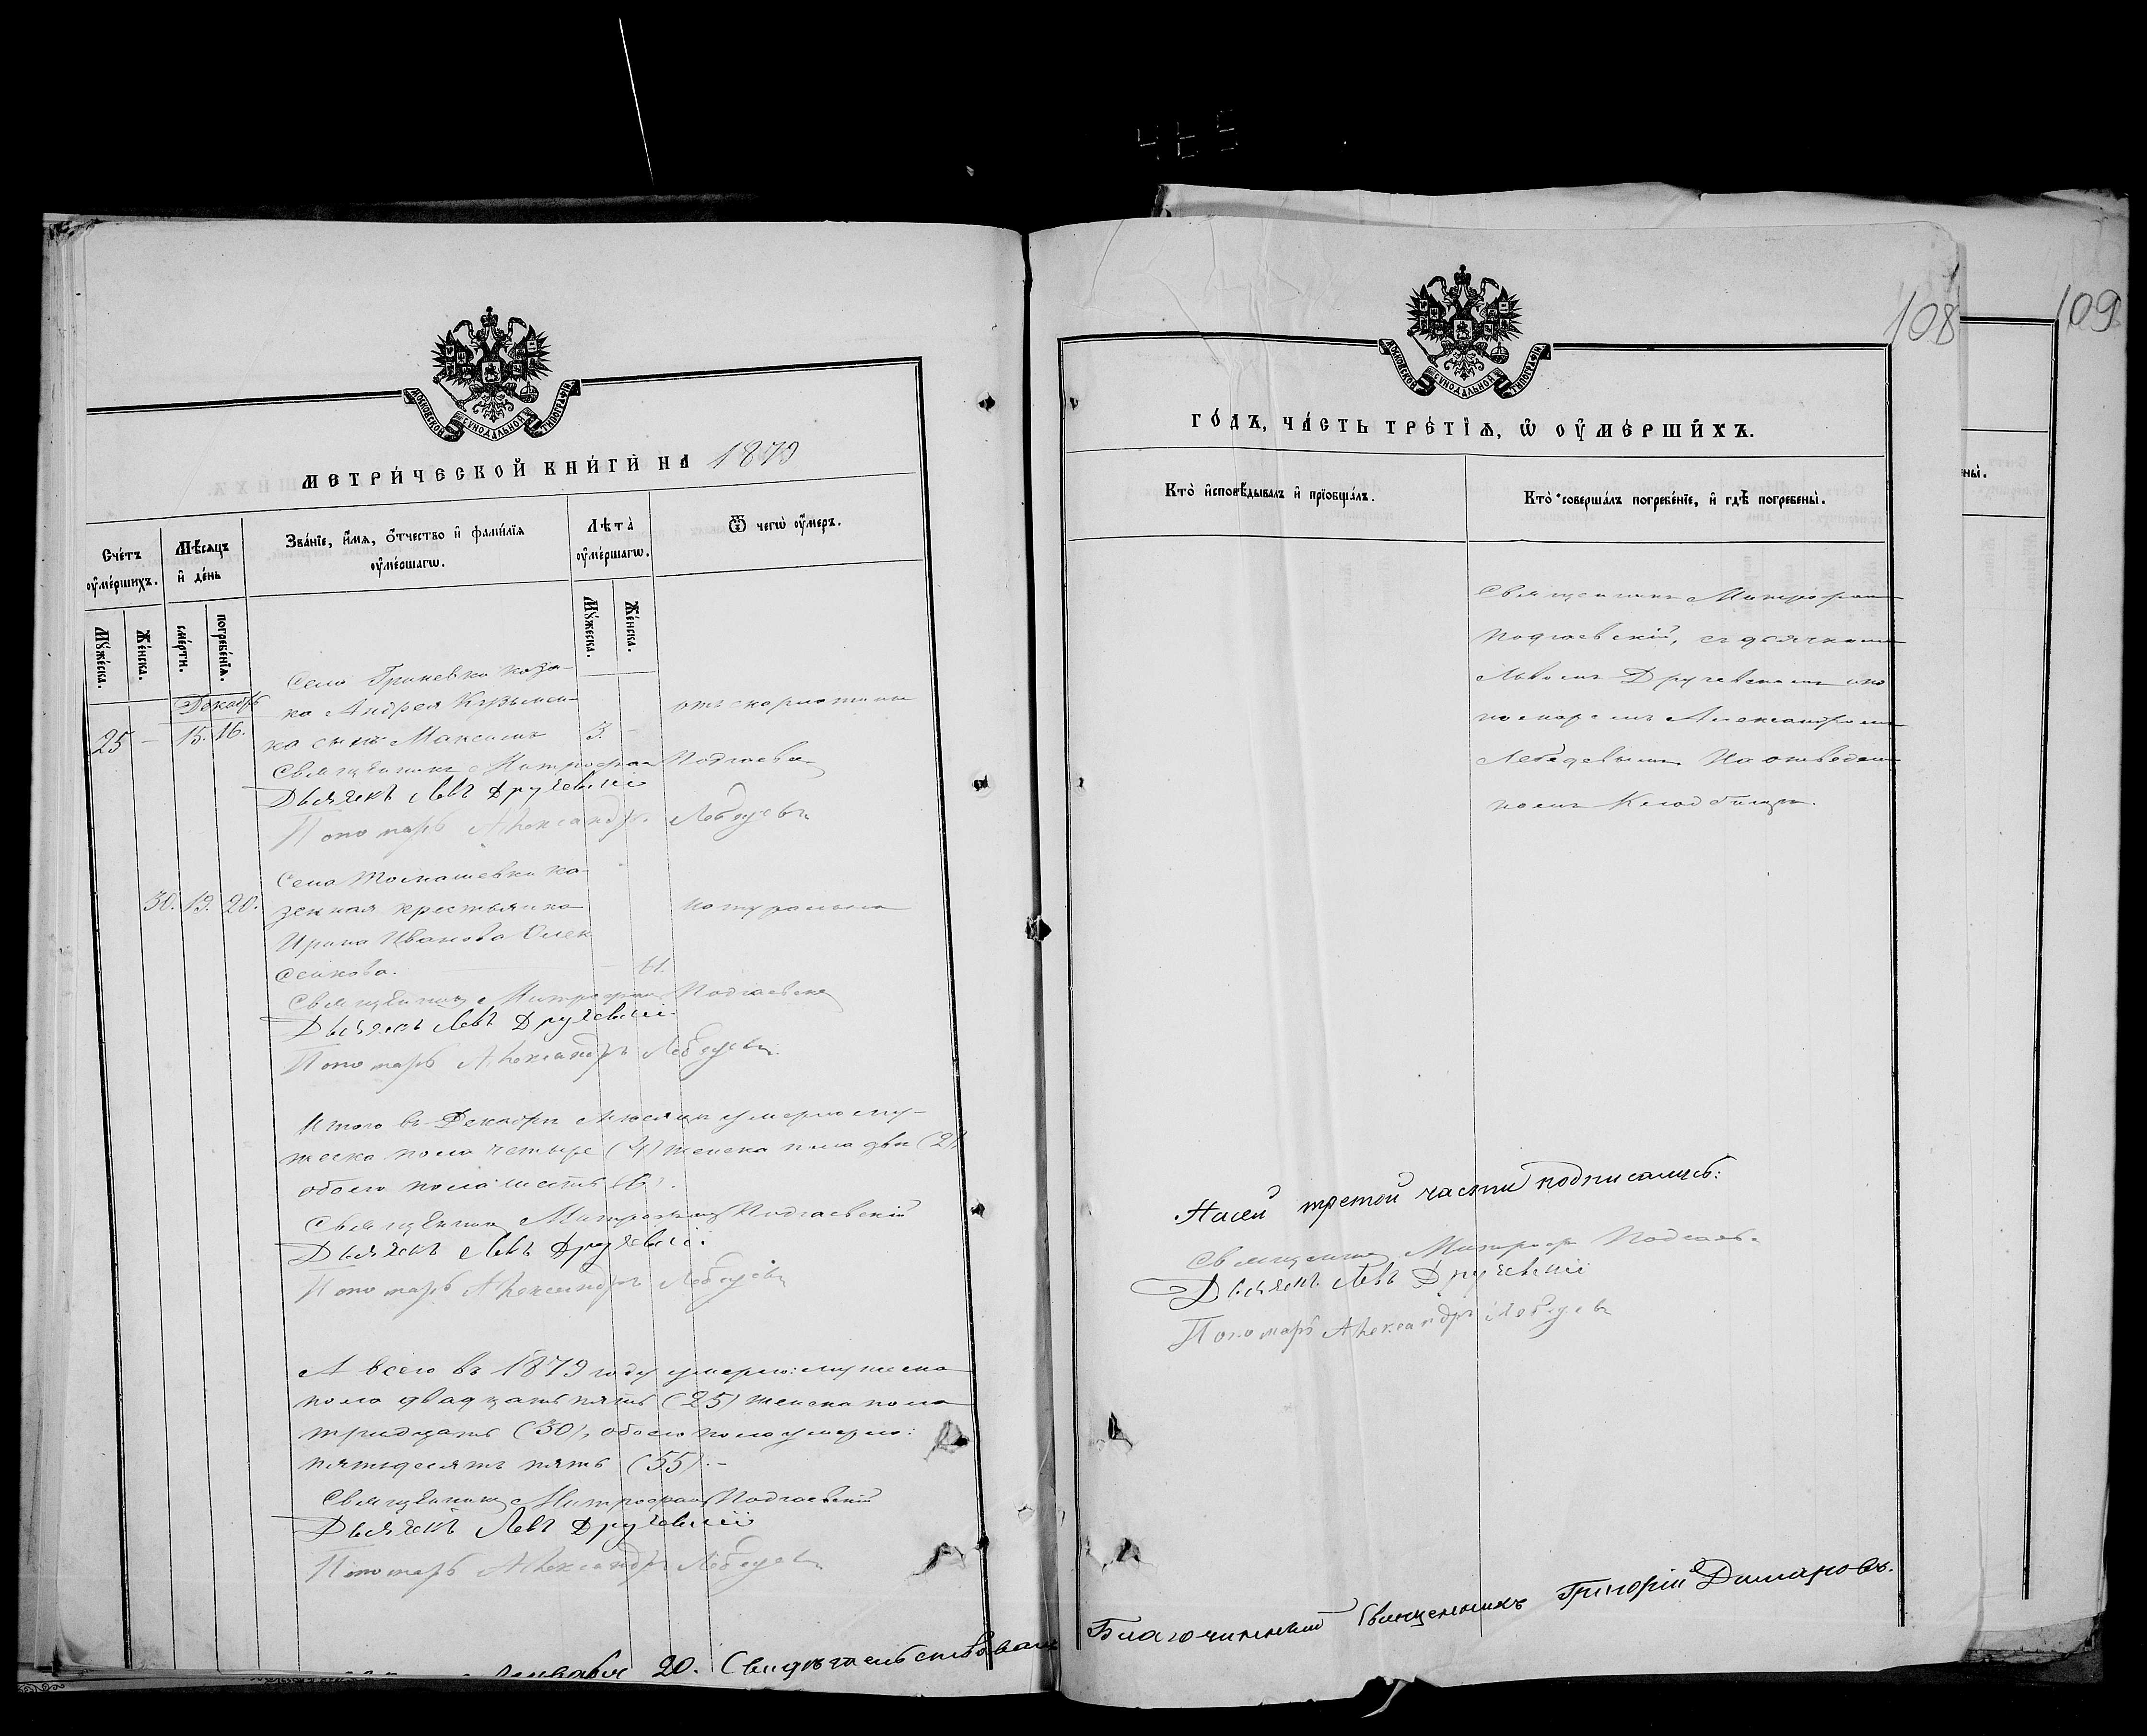 МОСКОВСКОЙ СѴНОДАЛЬНОЙ ТИПОГРАФІИ
МЕТРИ́ЧЕСКОЙ КНИ́ГИ НА 1879
Сче́тъ ᲂу҆ме́ршихъ.
Мѣ́сяцъ и҆ де́нь
Зва́нїе, и҆́мѧ, ѻ҆́тчество и҆ фами́лїѧ ᲂу҆ме́ршагѡ.
Лѣ́та ᲂу҆ме́ршагѡ.
Ѿ чегѡ̀ ᲂу҆́меръ.
Мꙋ́жеска.
Же́нска.
сме́рти.
погребе́нїѧ.
Мꙋ́жеска.
Же́нска.
Декабрь
Села Гриневки коза-
ка Андрея Кузьмен-
25 — 15. 16. ка сынъ Максимъ 3. — отъ скарлатины
Священникъ Митрофанъ Подгаевскій
Дьячекъ Левъ Дручевскій
Пономарь Александръ Лебедевъ
Села Томашевки ка-
30. 19. 20. зенная крестьянка натурально
Ирина Иванова Олек
сенкова. —
Священникъ Митрофанъ Подгаевскій
Дьячекъ Левъ Дручевскій
Пономарь Александръ Лебедевъ
Итого въ Декабрѣ мѣсяцѣ умерло му-
жеска пола четыре (4) женска пола двѣ (2),
обоего пола шесть (6).
Священникъ Митрофанъ Подгаевскій
Дьячекъ Левъ Дручевскій
Пономарь Александръ Лебедевъ
А всего въ 1879 году умерло: мужеска
пола двадцать пять (25) женска пола
тридцать (30), обоего пола умерло:
пятьдесятъ пять (55). —
Священникъ Митрофанъ Подгаевскій
Дьячекъ Левъ Дручевскій
Пономарь Александръ Лебедевъ
20. Свидѣтельствовалъ
108
109
МОСКОВСКОЙ СѴНОДАЛЬНОЙ ТИПОГРАФІИ
ГО́ДЪ, ЧА́СТЬ ТРЕ́ТЇѦ, Ѡ҆ ОУ҆МЕ́РШИХЪ.
Кто̀ и҆сповѣ́дывалъ и҆ прїѡбща́лъ.
Кто̀ соверша́лъ погребе́нїе, и҆ гдѣ̀ погребены̀.
ены̀.
Священникъ Митрофанъ
Подгаевскій, съ дьячкомъ
Львомъ Дручевскимъ и по
номаремъ Александромъ
Лебедевымъ На отведен
номъ Кладбищѣ.
На сей третой части подписались:
Священникъ Митроф Подгаев.
Дьячекъ Левъ Дручевскій
Пономарь Александръ Лебедевъ
Благочинный Священникъ Григорій Димаровъ.